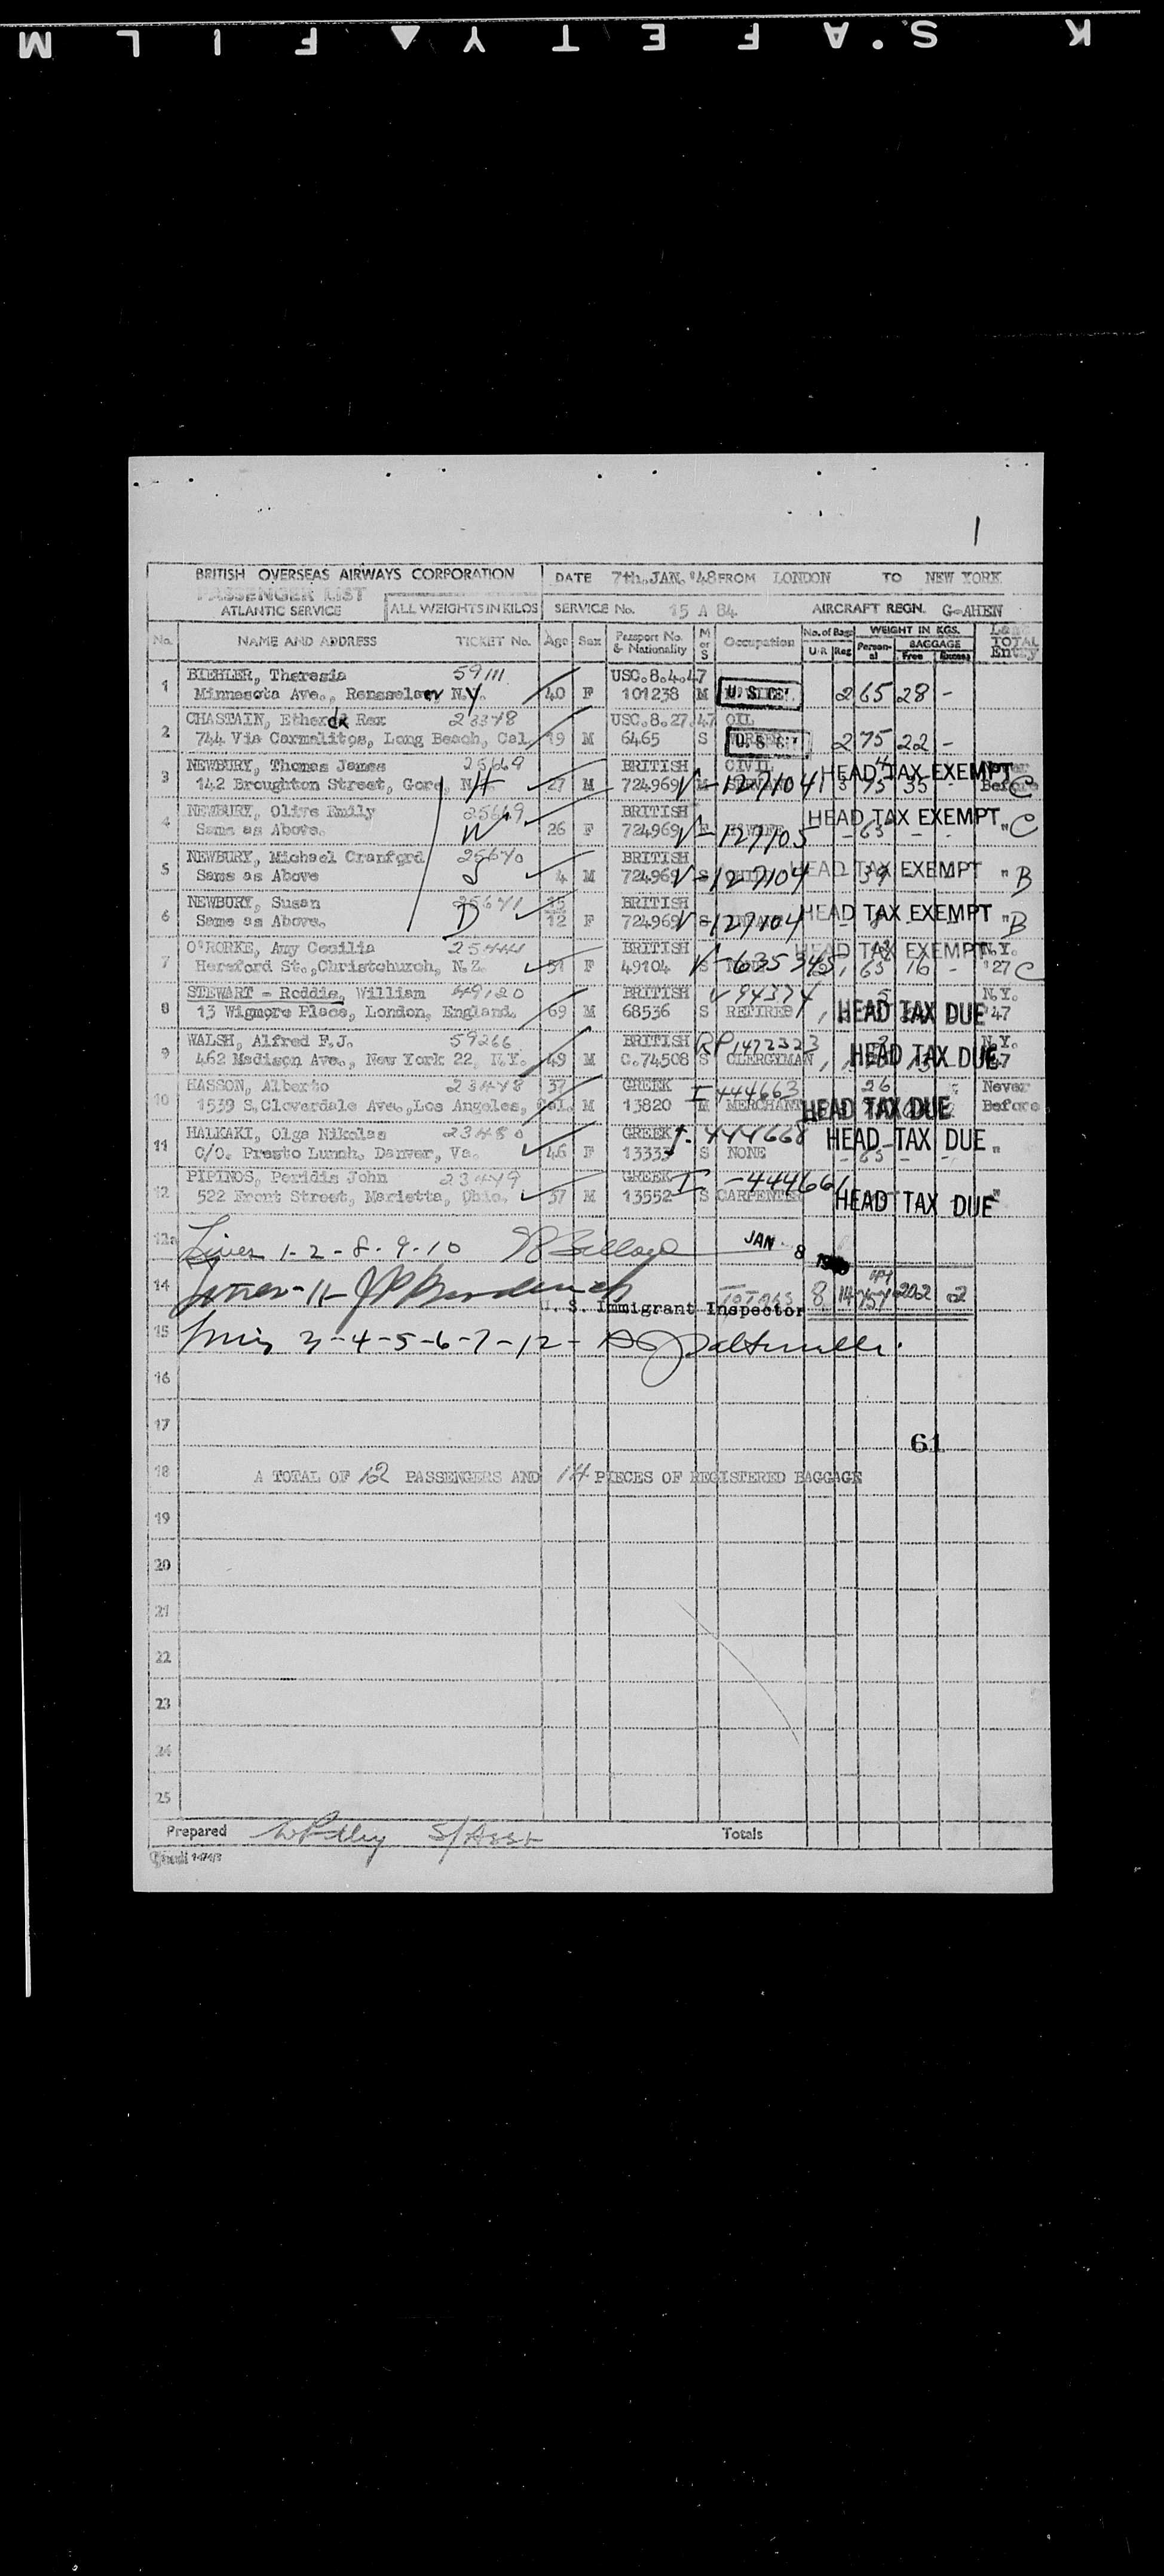 K S.A F E T Y ▲ F I L M
1
BRITISH OVERSEAS AIRWAYS CORPORATION
DATE 7th.JAN.'48 FROM LONDON TO NEW YORK
PASSENGER LIST
ATLANTIC SERVICE ALL WEIGHTS IN KILOS SERVICE No. 15 A 84 AIRCRAFT REGN. G-AHEN
No. NAME AND ADDRESS TICKET No. Age Sex Passport No. & Nationality M or S Occupation No. of Bags U/R Reg WEIGHT IN KGS. Personal BAGGAGE Free Excess TOTAL Entry
1 BIEHLER, Theresia 59111 USC.8.4.47
Minnesota Ave., Rensselaer N.Y. 40 F 101238 M U.S.C. 2 65 28 -
2 CHASTAIN, Rex 23378 USC.8.27.47 OIL
744 Via Carmelitos, Long Beach, Cal. 19 M 6465 S 2 75 22 -
3 NEWBURY, Thomas James 25669 BRITISH CIVIL HEAD TAX EXEMPT Never
142 Broughton Street, Gore, N.Z. H 27 M 724969 M V-127104 SERVANT 1 3 75 35 - Before C
4 NEWBURY, Olive Emily 25669 BRITISH HEAD TAX EXEMPT
Same as Above. W 26 F 724969 V-127105 - 63 - " C
5 NEWBURY, Michael Cranford 25670 BRITISH HEAD TAX EXEMPT
Same as Above S 4 M 724969 S V-127104 " B
6 NEWBURY, Susan 25671 BRITISH HEAD TAX EXEMPT
Same as Above. D 12 F 724969 S V-127104 " B
7 O'RORKE, Amy Cecilia 25444 BRITISH HEAD TAX EXEMPT N.Y.
Hereford St.,Christchurch, N.Z. 51 F 49104 S V-635345 65 16 - '27 C
8 STEWART - Roddie, William 49120 BRITISH V94374 N.Y.
13 Wigmore Place, London, England. 69 M 68536 S RETIRED HEAD TAX DUE '47
9 WALSH, Alfred F.J. 59266 BRITISH RP1472323 N.Y.
462 Madison Ave., New York 22, N.Y. 49 M C.74508 S CLERGYMAN HEAD TAX DUE '47
10 HASSON, Alberto 23478 37 GREEK I-444663 26 Never
1539 S.Cloverdale Ave.,Los Angeles, Cal. M 13820 M MERCHANT HEAD TAX DUE Before
11 HALKAKI, Olga Nikolas 23480 GREEK I-444668 HEAD TAX DUE "
C/O. Presto Lunch, Danver, Va. 46 F 13333 S NONE - 65 -
12 PIPINOS, Peridis John 23479 GREEK I-444661
522 Front Street, Marietta, Ohio. 37 M 13552 S CARPENTER HEAD TAX DUE "
13 Lines 1-2-8-9-10 JAN 8
14 Lines-11- TOTALS 8 14 757
U. S. Immigrant Inspector
15 Lines 3-4-5-6-7-12-
16
17
61
18 A TOTAL OF 12 PASSENGERS AND 14 PIECES OF REGISTERED BAGGAGE
19
20
21
22
23
24
25
Prepared Totals